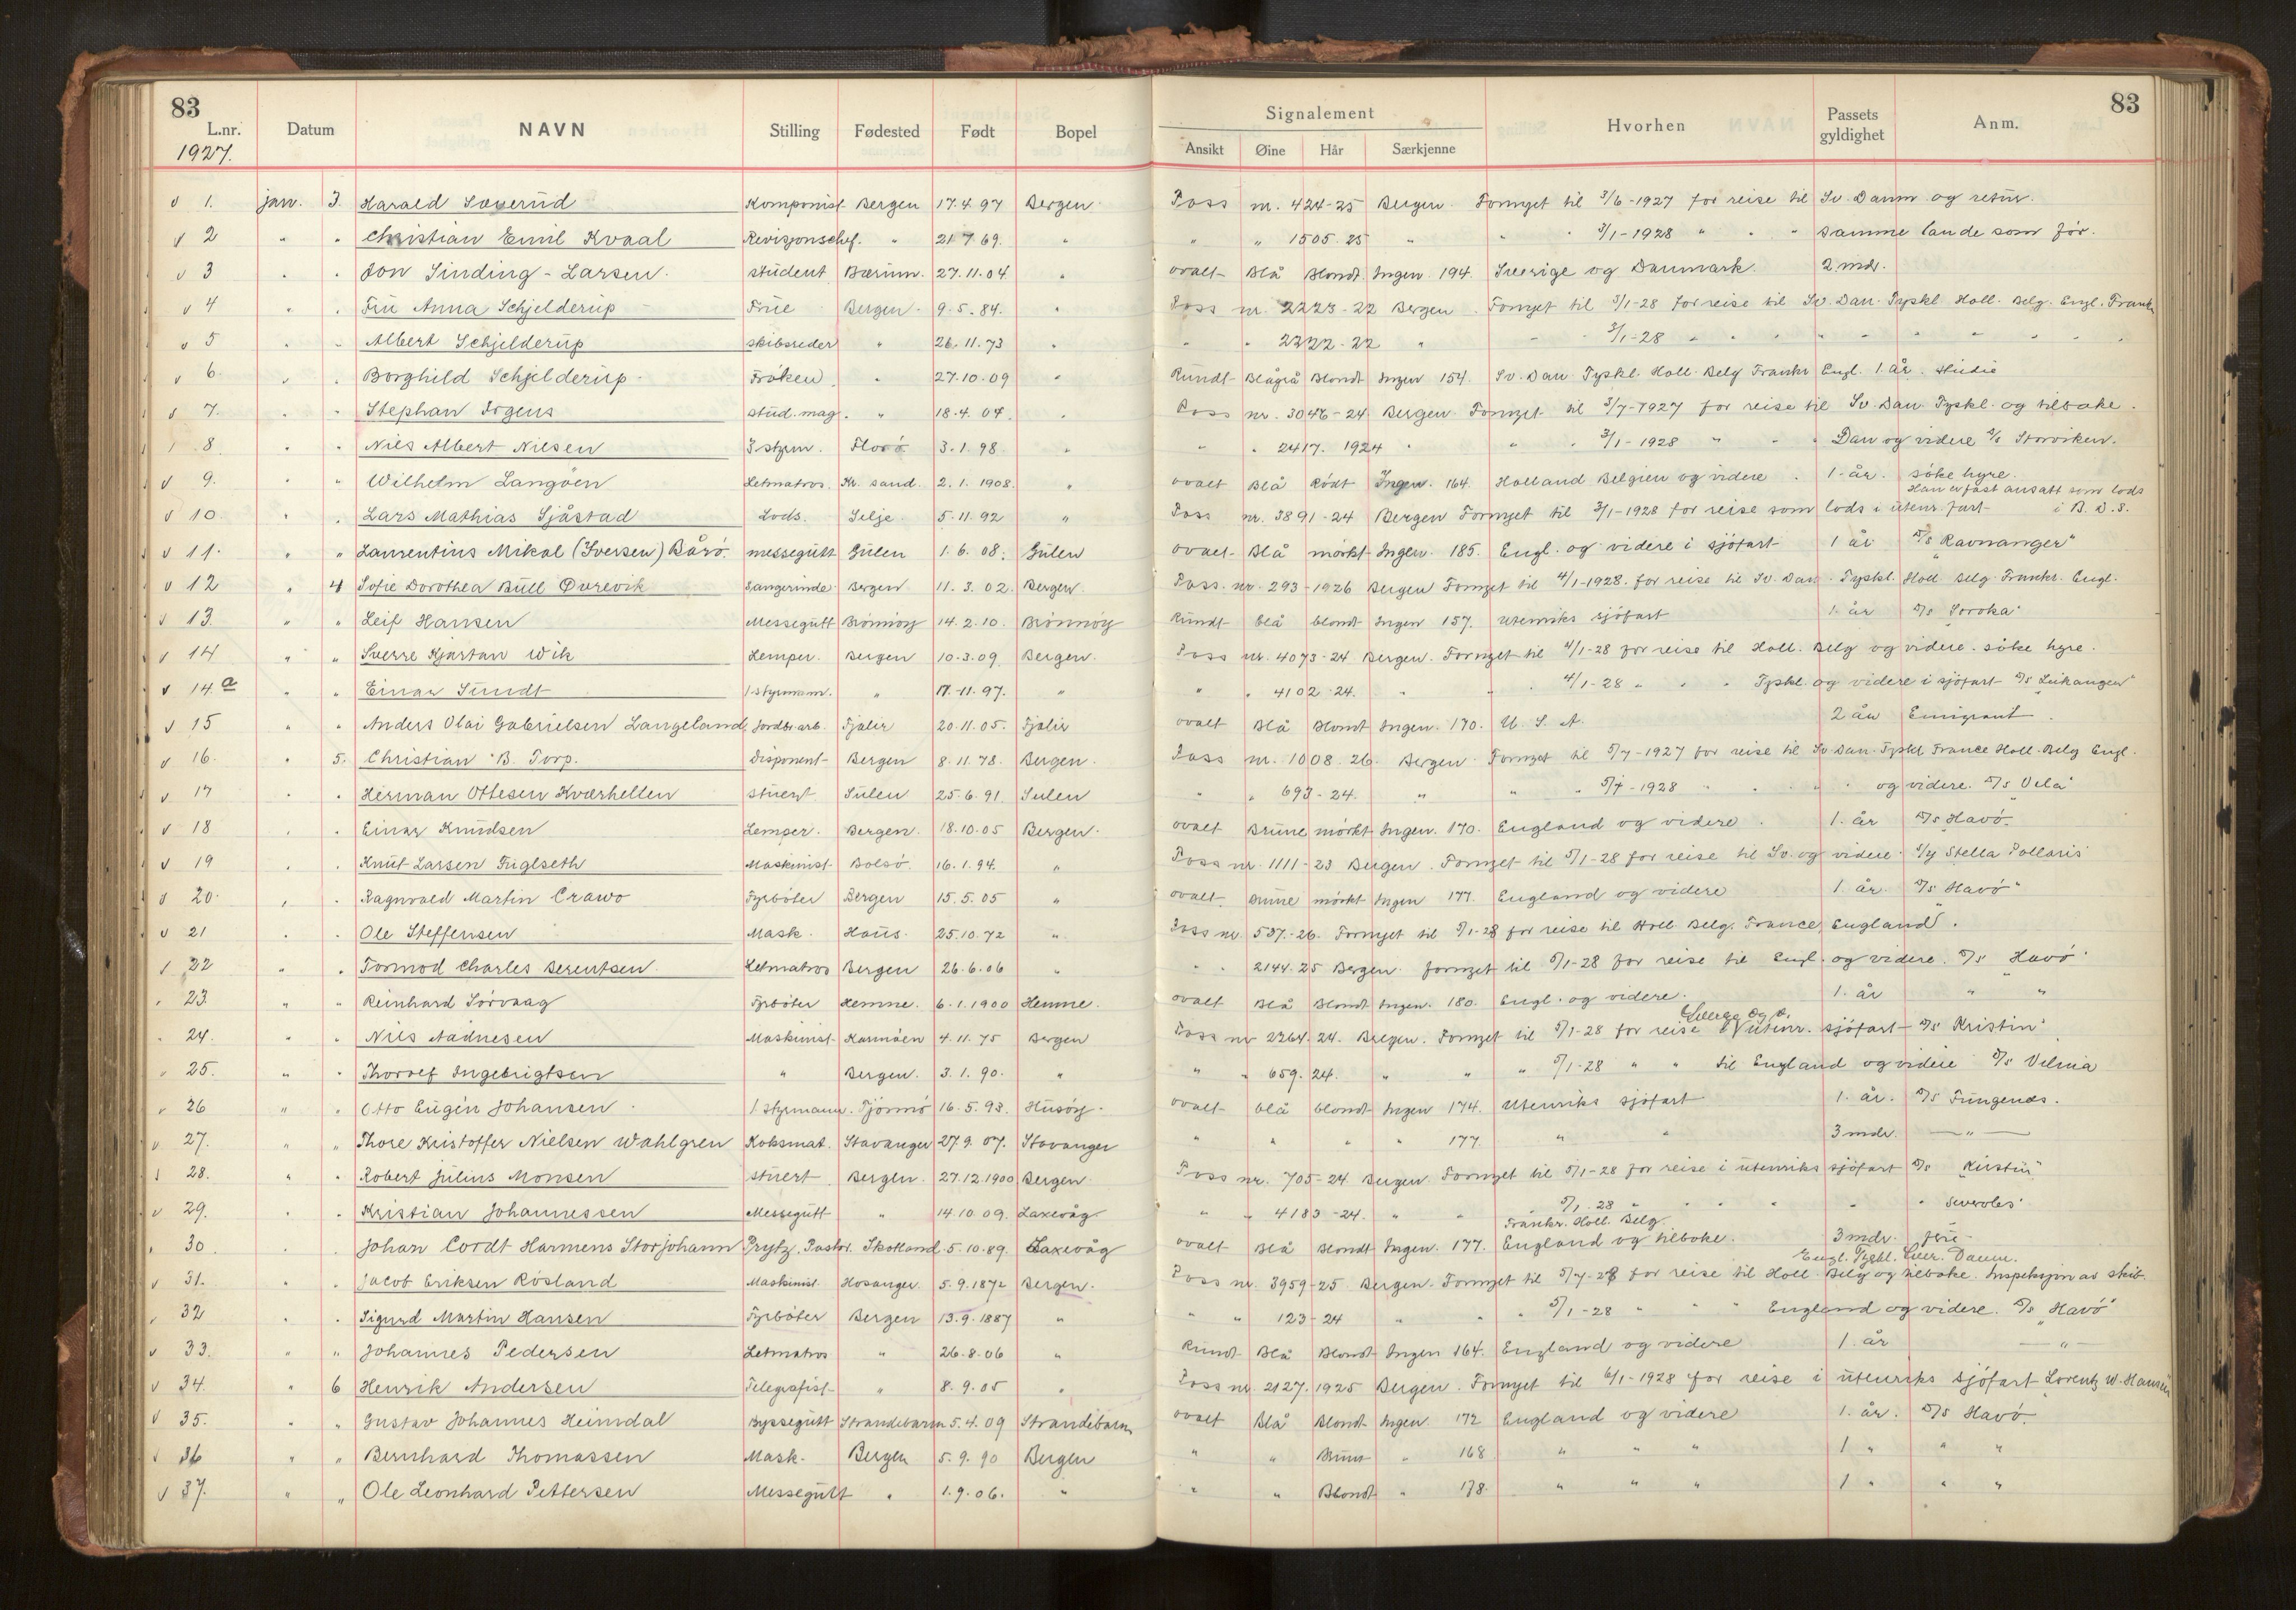 83
L.nr. Datum NAVN Stilling Fødested Født Bopel
1927.
1. jan. 3. Harald Sæverud Komponist Bergen 17.4.97 Bergen
2 " " Christian Emil Kvaal Revisjonschef. " 21.7.69. "
3 " " Jon Sinding-Larsen. student Bærum. 27.11.04 "
4 " " Frü Anna Schjelderup Frue Bergen. 9.5.84. "
5 " " Albert Schjelderup skibsreder " 26.11.73 "
6. " " Borghild Schjelderup Frøken " 27.10.09 "
7. " " Stephan Irgens stud.mag. " 18.4.04. "
8. " " Nils Albert Nilsen 3 styrm. Florö 3.1.98 "
9. " " Wilhelm Langöen Letmatros Kr. sand. 2.1.1908. "
10. " " Lars Mathias Sjåstad Lods. Selje 5.11.92 "
11. " " Laurentius Mikal (Iversen) Bårö. messegutt Gulen 1.6.08. Gulen
12 " 4 Sofie Dorothea Bull Øvrevik Sangerinde Bergen 11.3.02. Bergen
13. " " Leif Hansen Messegutt Brönnöy 14.2.10. Brönnöy
14 " " Sverre Kjartan Wik Lemper. Bergen 10.3.09. Bergen.
14a " " Einar Sundt 1 styrmann. " 17.11.97. "
15 " " Anders Olai Gabrielsen Langeland Jordbr.arb. Fjaler 20.11.05. Fjaler
16. " 5. Christian B. Torp. Disponent Bergen 8.11.78. Bergen.
17 " " Herman Ottesen Kværhellen stuert Sulen 25.6.91 Sulen
18 " " Einar Knudsen Lemper. Bergen. 18.10.05 Bergen.
19 " " Knut Larsen Fuglseth Maskinist Bolsö. 16.1.94. "
20. " " Ragnvald Martin Crawo Fyrböter Bergen 15.5.05 "
21 " " Ole Steffensen Mask. Haus. 25.10.72 "
22 " " Tormod Charles Berentsen. Letmatros Bergen 26.6.06 "
23. " " Reinhard Sörvaag Fyrböter Hemne. 6.1.1900 Hemne.
24. " " Nils Aadnesen Maskinist. Karmöen 4.11.75 Bergen
25. " " Thorolf Ingebrigtsen " Bergen. 3.1.90. "
26 " " Otto Eugén Johansen 1 styrmann. Tjörmö 16.5.93. Husöy.
27. " " Thore Kristoffer Nielsen Wahlgren Koksmat. Stavanger 27.9.07. Stavanger
28. " " Robert Julius Monsen stuert Bergen. 27.12.1900 Bergen
29. " " Kristian Johannessen Messegutt " 14.10.09. Laxevåg
30 " " Johan Cordt Harmens Storjohann Prytz. Pastor. Skotland 5.10.89. Laxevåg
31. " " Jacob Eriksen Rösland Maskinist Hosanger. 5.9.1872 Bergen.
32 " " Sigurd Martin Hansen Fyrböter Bergen 13.9.1887 "
33. " " Johannes Pedersen Letmatros " 26.8.06 "
34. " 6 Henrik Andersen Telegrafist " 8.9.05 "
35. " " Gustav Johannes Heimdal Byssegutt Strandebarm 5.4.09 Strandebarm
36 " " Bernhard Thomassen Mask. Bergen 5.9.90 Bergen
37. " " Ole Leonhard Pettersen Messegutt " 1.9.06. "
83
Signalement Hvorhen Passets gyldighet Anm.
Ansikt Øine Hår Særkjenne
Pass nr. 424-25 Bergen. Fornyet til 3/6-1927 for reise til Sv. Danm og retur.
" " 1505.25 " " " 3/1-1928 " " " samme lande som för.
ovalt Blå Blondt Ingen 194. Sverige og Danmark. 2. mdr.
Pass nr. 2223-22 Bergen. Fornyet til 3/1-28 for reise til Sv. Dan. Tyskl. Holl. Belg. Engl. Frankr
" " 2222-22 " " " 3/1-28 " " " " " " " " "
Rundt Blågrå Blondt Ingen 154. Sv. Dan Tyskl. Holl. Belg Frankr Engl. 1. år. studie
Pass nr. 3046-24 Bergen Fornyet til 3/7-1927 for reise til Sv. Dan. Tyskl. og tilbake.
" " 2417. 1924 " " " 3/1-1928 " " " Dan og videre S/s Storviken.
ovalt Blå Rödt Ingen. 164. Holland Belgien og videre. 1. år. söke hyre.
Han er fast ansatt som lods
Pass nr. 3891-24 Bergen Fornyet til 3/1-1928 for reise som lods i utenr. fart i B.D.S.
ovalt Blå mörkt Ingen. 185. Engl. og videre i sjöfart 1 år S/s "Ravnanger"
Pass. nr. 293-1926 Bergen Fornyet til 4/1-1928. for reise til Sv. Dan. Tyskl. Holl Belg. Frankr. Engl.
Rundt blå blondt Ingen 157. utenriks sjöfart 1. år S/s "Soroka"
Pass nr. 4073-24 Bergen. Fornyet til 4/1-28 for reise til Holl. Belg og videre. söke hyre.
" " 4102-24. " " " 4/1-28 " " " Tyskl. og videre i sjöfart S/s "Leikanger"
ovalt Blå Blondt Ingen. 170. U.S.A. 2 år Emigrant.
Pass nr. 1008.26. Bergen Fornyet til 5/7-1927 for reise til Sv. Dan. Tyskl France Holl. Belg Engl.
" " 693-24. " " " 5/7-1928 " " " og videre. S/s "Vela"
ovalt Brune mörkt Ingen. 170. England og videre. 1. år S/s "Havö"
Pass nr. 1111-23 Bergen. Fornyet til 5/1-28 for reise til Sv. og videre. S/y Stella Pollaris
ovalt Brune mörkt Ingen 177. England og videre 1. år. S/s "Havö"
Pass nr. 537.-26. Fornyet til 5/1-28 for reise til Holl. Belg. France, England.
" " 2144.25 Bergen. fornyet til 5/1-28 for reise til Engl. og videre. S/s "Havö"
ovalt Blå Blondt Ingen. 180. Engl. og videre. 1. år " "
Pass nr 2264.24. Bergen. Fornyet til 5/1-28 for reise utenr. sjöfart S/s "Kristin"
" " 659.24. " " " 5/1-28 " " til England og videre S/s Velma
ovalt blå blondt Ingen 174. Utenriks sjöfart 1. år. S/s Fungenes.
" " " " 177. " " 3 mdr. — " —
Pass nr. 705-24 Bergen. Fornyet til 5/1-28 for reise i utenriks sjöfart S/s "Kristin"
" " 4183-24. " " 5/1.28 " " " " "
Frankr. Holl. Belg.
ovalt Blå Blondt Ingen. 177. England og tilbake. 3 mdr.
Engl. Tyskl. Sver. Danm.
Pass nr. 3959-25 Bergen. Fornyet til 5/7-28 for reise til Holl Belg og tilbake. Inspeksjon av skib.
" " 123-24 " " " 5/1-28 " " " England og videre. S/s "Havö"
Rundt Blå Blondt Ingen 164. England og videre 1. år — " —
Pass nr. 2127.1925 Bergen. Fornyet til 6/1-1928 for reise i utenriks sjöfart Lorentz W. Hansen
ovalt Blå Blondt Ingen 172 England og videre 1. år. S/s Havö.
" " Brunt " 168 " " " 1 " " "
" " Blondt " 178. " " " 1 " " "